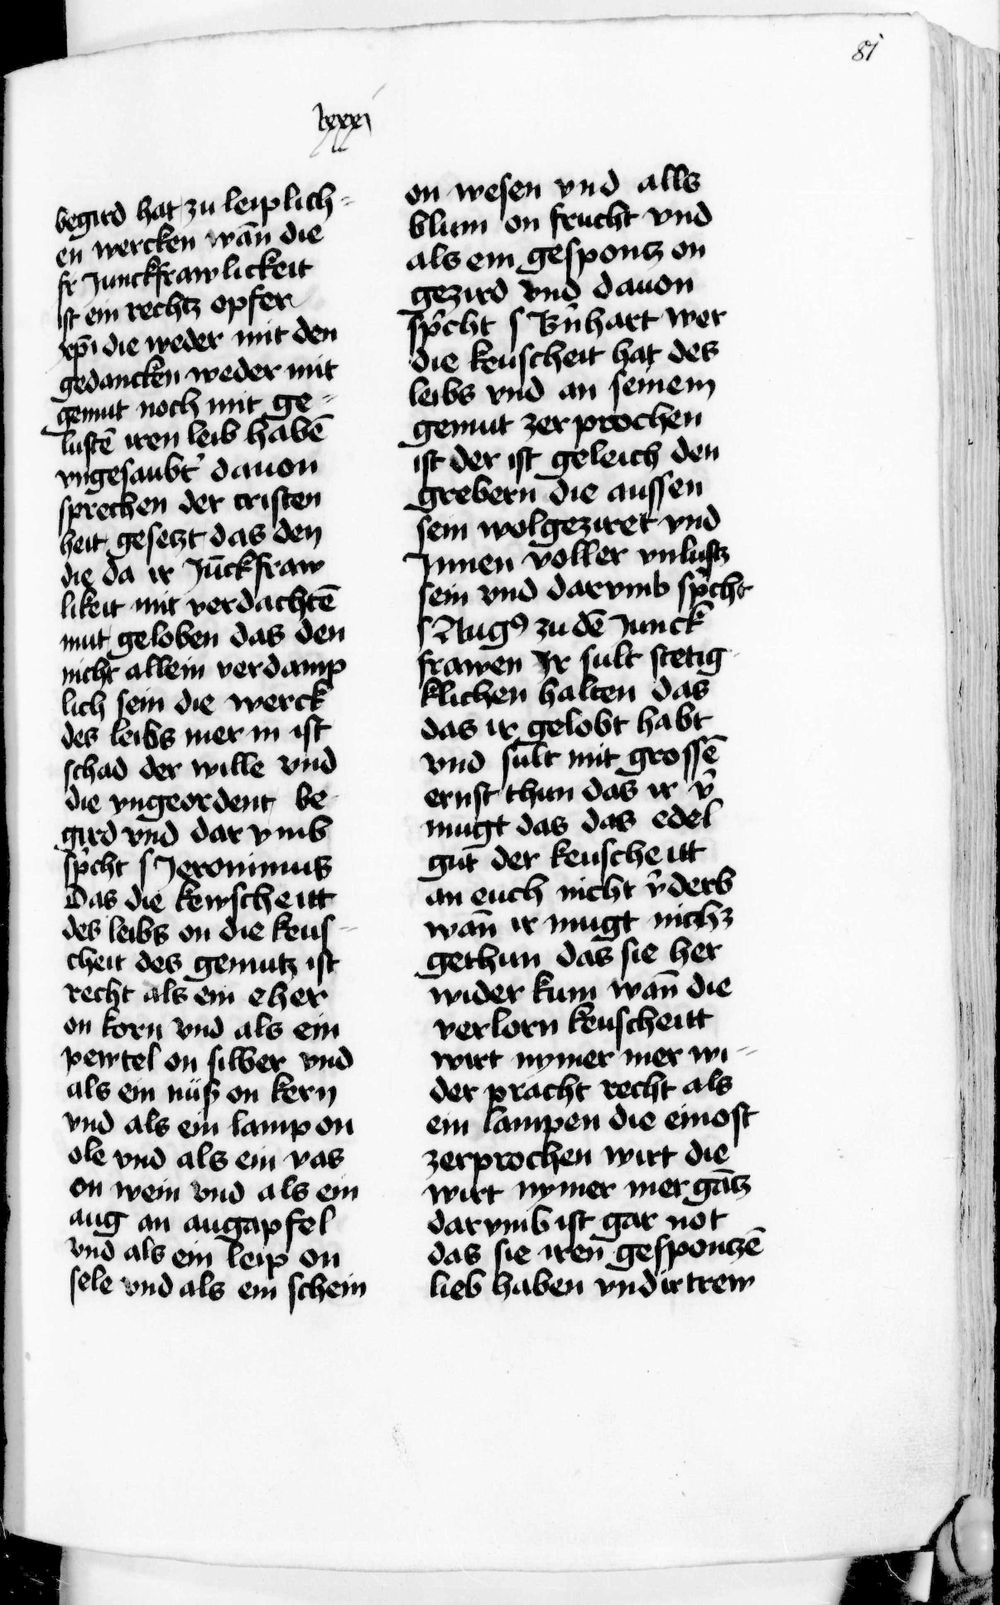 81
lxxxi
begird hat zu leiplich=
en wercken wan̄ die
fr Junckfrawlickeit
ist ein rechtz opfer
xp̄i die weder mit den
gedancken weder mit
gemut noch mit ge=
lustē iren leib habē
vngesaubt' dauon
sprechen der cristen
heit gesetzt das den
die da ir Jūckfraw
likeit mit verdachtē
mut geloben das den
nicht allein verdamp
lich sein die werck
des leibs mer in ist
schad der wille vnd
die vngeordent be
gird vnd dar vmb
sp̄cht s Jeronimus
Das die kewscheitt
des leibs on die keus=
cheit des gemutz ist
recht als ein eher
on korn vnd als ein
pewtel on silber vnd
als ein nüß on kern
vnd als ein lamp on
ole vnd als ein vas
on wein vnd als ein
aug an augapfel
vnd als ein leip on
sele vnd als ein schein
on wesen vnd alls
blum on frucht vnd
als ein gesponcz on
gezird vnd dauon
sp̄cht s Bn̄hart wer
die keuscheit hat des
leibs vnd an seinem
gemut zerprochen
ist der ist geleich den
grebern die aussen
sein wolgeziret vnd
Jnnen voller vnlustz
sein vnd darvmb sp̄cht
s Augꝰ zu dē Junck
frawen Ir sult stetig
klichen halten das
das ir gelobt habt
vnd sult mit grossē
ernst thun das ir v̄
mugt das das edel
gut der keuscheitt
an euch nicht v̄derb
wan̄ ir mugt nichz
gethun das sie her
wider kum wan̄ die
verlorn keuscheitt
wirt nymer mer wi=
der pracht recht als
ein lampen die einost
zerprochen wirt die
wirt nymer mer gātz
darvmb ist gar not
das sie iren gesponczē
lieb haben vnd ir trew